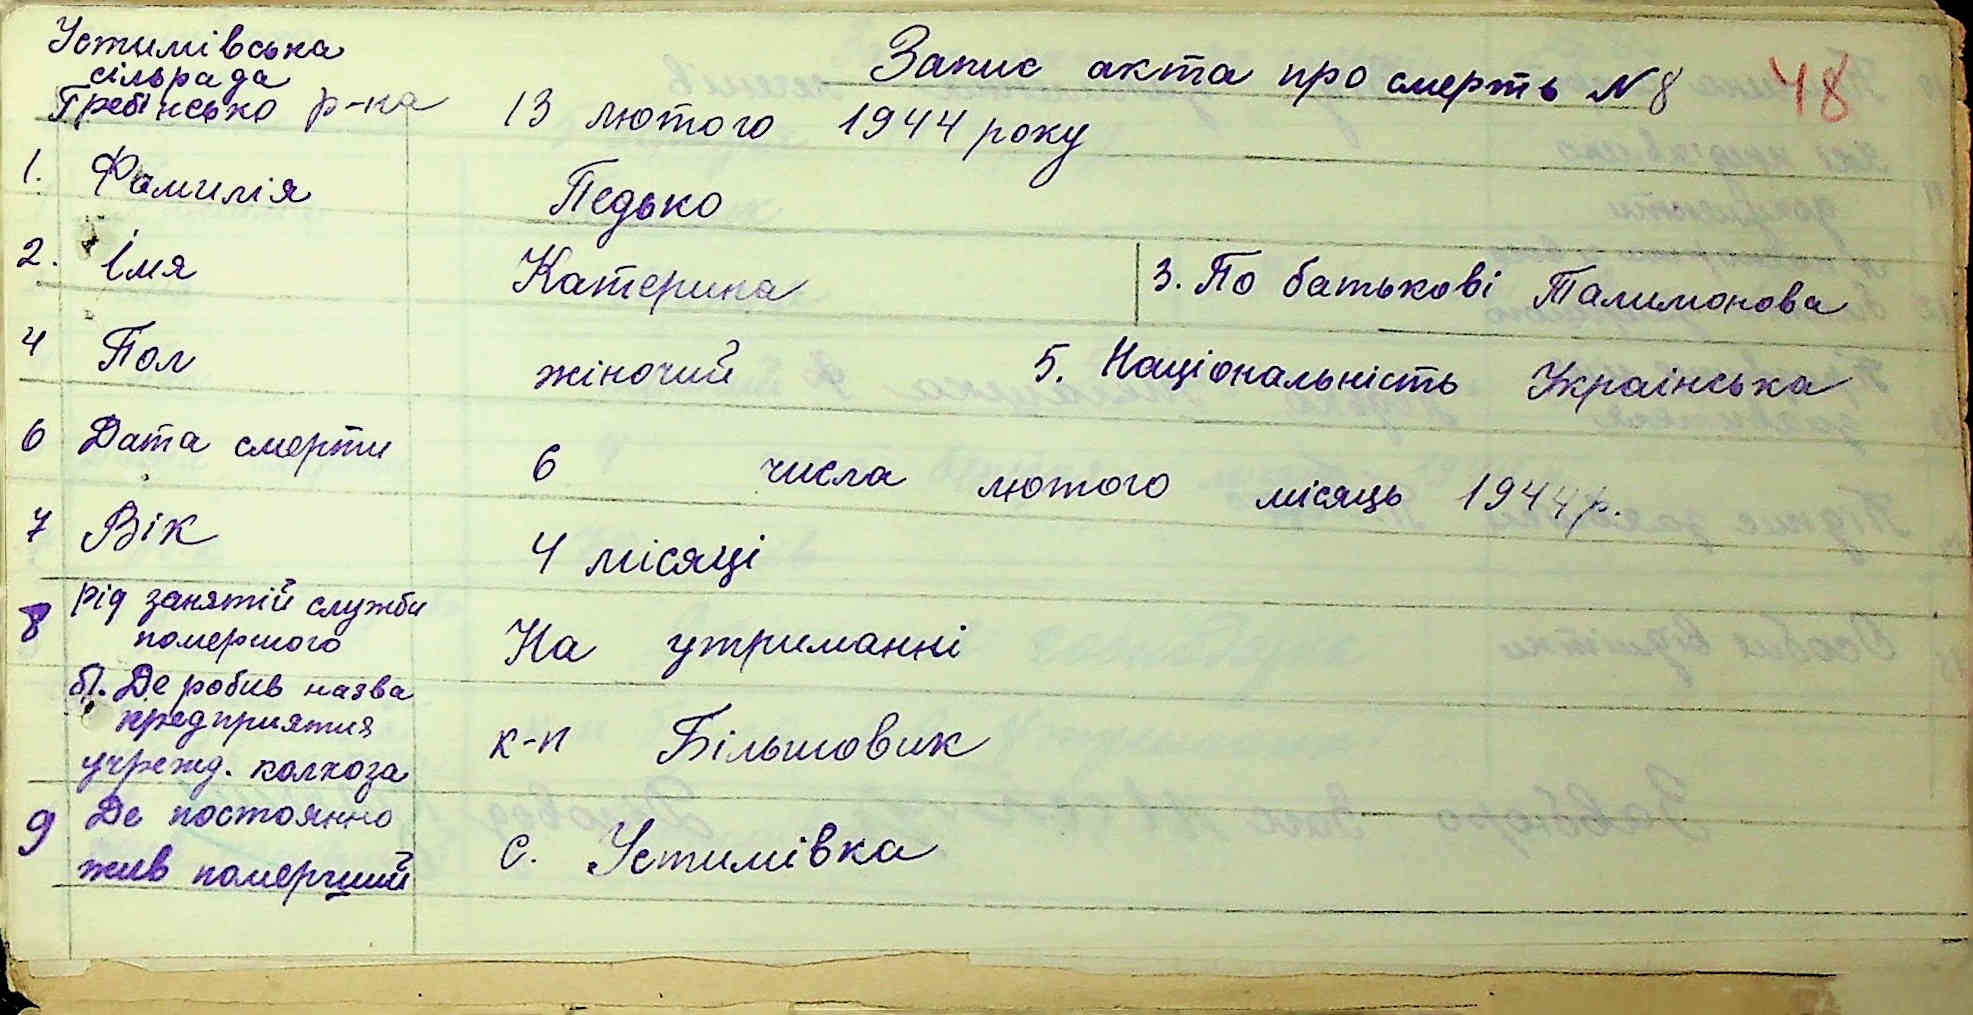 Устимівська
сільрада
Гребінсько р-на
Запис акта про смерть N 8
48
13 лютого 1944 року
1. Фамилія Педько
2. Імя Катерина 3. По батькові Талимонова
4 Пол жіночий 5. Національність Українська
6 Дата смерти 6 числа лютого місяць 1944 р.
7 Вік 4 місяці
8 рід занятій служби
помершого На утриманні
б). Де робив назва
предприятия
учрежд. колхоза к-п Більшовик
9 Де постоянно
жив померший с. Устимівка